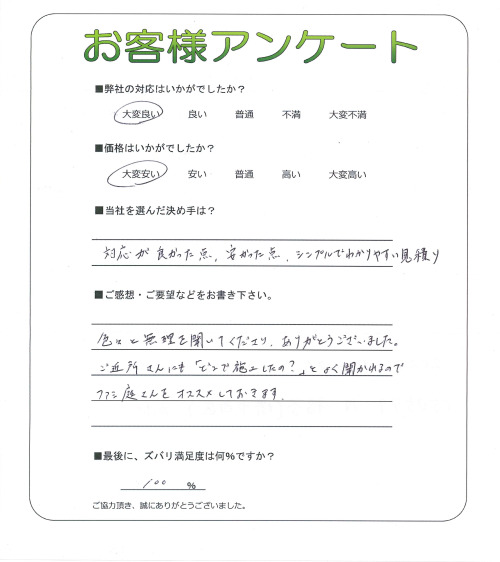 お客様アンケート
■弊社の対応はいかがでしたか？
大変良い 良い 普通 不満 大変不満
■価格はいかがでしたか？
大変安い 安い 普通 高い 大変高い
■当社を選んだ決め手は？
対応が良かった点、安かった点、シンプルでわかりやすい見積り
■ご感想・ご要望などをお書き下さい。
色々と無理を聞いてくださり、ありがとうございました。
ご近所さんにも「どこで施工したの？」とよく聞かれるので
ファン庭さんをオススメしておきます。
■最後に、ズバリ満足度は何%ですか？
100 %
ご協力頂き、誠にありがとうございました。